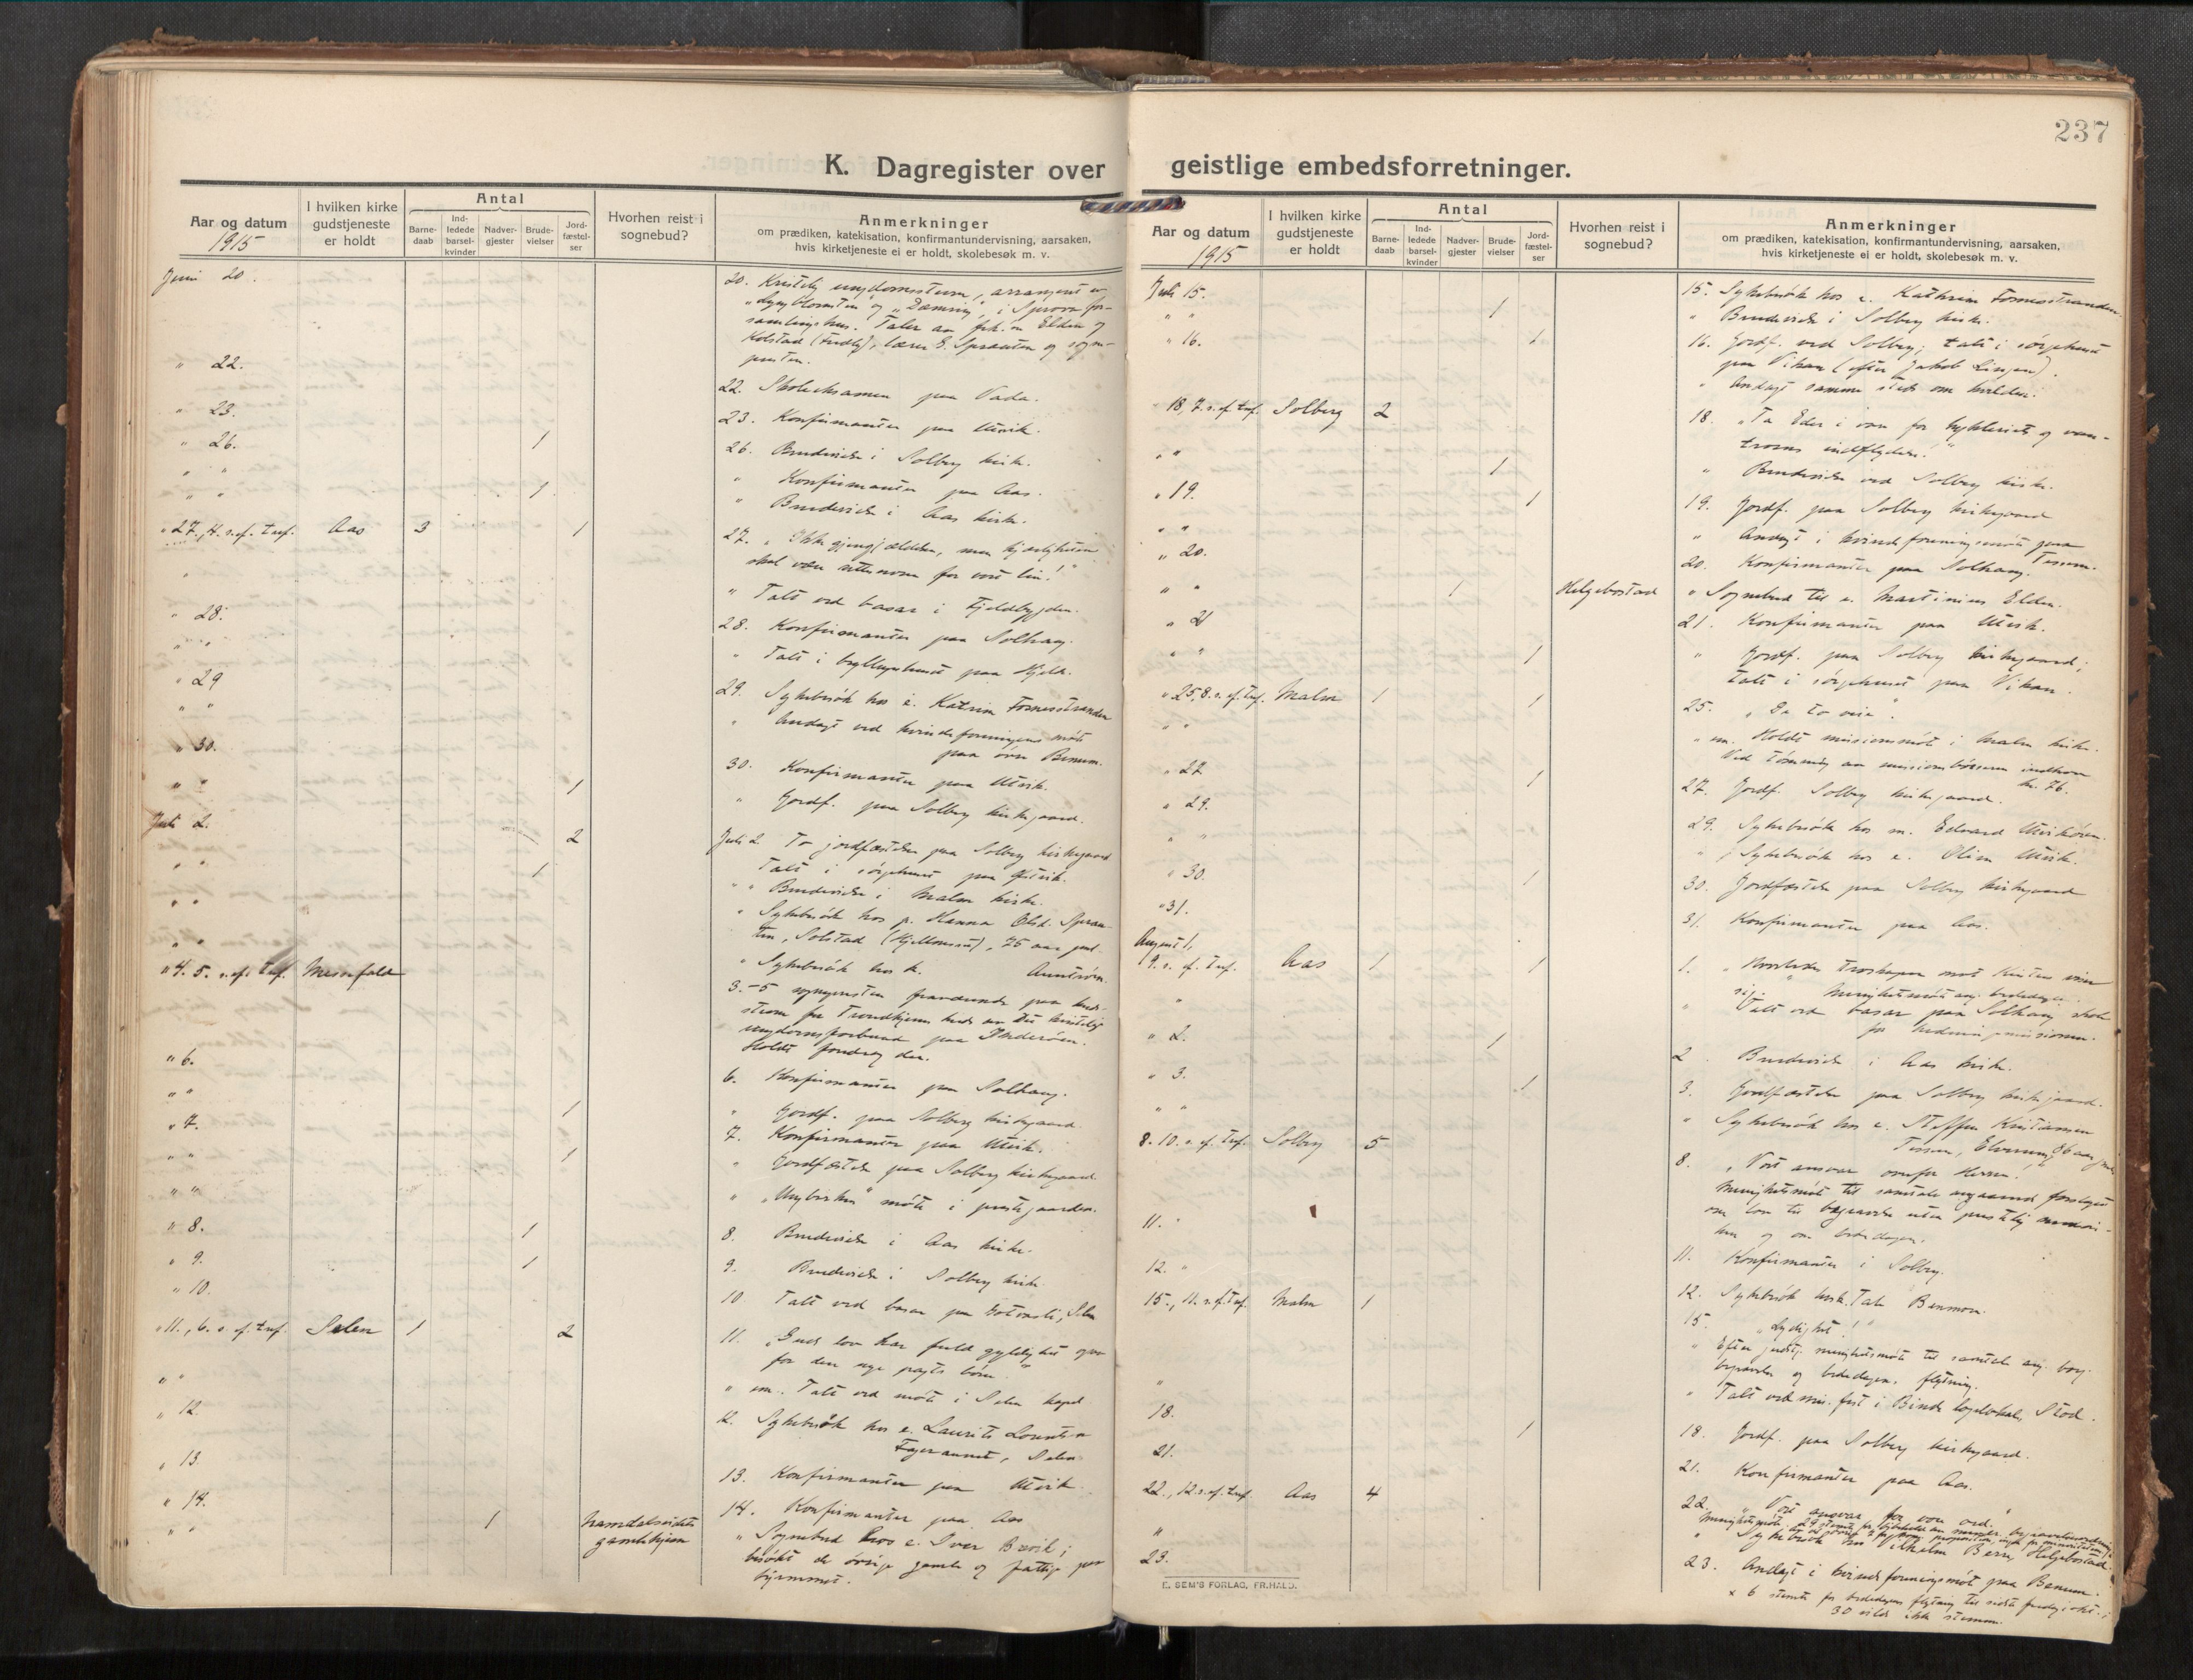 237
K. Dagregister over
geistlige embedsforretninger.
Aar og datum
1915
I hvilken kirke
gudstjeneste
er holdt
Antal
Barne-
daab
Ind-
ledede
barsel-
kvinder
Nadver-
gjester
Brude-
vielser
Jord-
fæstel-
ser
Hvorhen reist i
sognebud?
Anmerkninger
om prædiken, katekisation, konfirmantundervisning, aarsaken,
hvis kirketjeneste ei er holdt, skolebesøk m. v.
Juni 20. 20. Kristelig ungdomsstevne, arrangert av
" og "Dæmring", i Sprova for-
samlingshus. Taler av frk. Elden og
Kolstad lærer E. Sprauten og sogne-
presten.
" 22. 22. Skoleeksamen paa Vada.
" 23. 23. Konfirmanter paa Utvik.
" 26. 1 26. Brudevielse i Solberg kirke.
" " " Konfirmanter paa Aas.
" " 1 " Brudevielse i Aas kirke.
" 27., 4. s. ef. tref. Aas 3 1 27. "Ikke gjengjældelsen, men kjærligheten
skal være rettesnoren for vort liv!"
" " Talt ved basar i Fjeldbygden.
" 28. 28. Konfirmanter paa Solhaug.
" " " Talt i bryllupshuset paa Hjelde.
" 29 29. Sykebesøk hos e. Katrine Fosnesstranden
" " " Andagt ved kvindeforeningens møte
paa øvre Benum.
" 30. 30. Konfirmanter paa Utvik.
" " 1 " Jordf. paa Solberg kirkegaard.
Juli 2. 2 Juli 2. To jordfæstelser paa Solberg kirkegaard
Talt i sørgehuset paa
" " 1 " " Brudevielse i Malm kirke.
" " " Sykebesøk hos p. Hanna Olsd. Sprau-
ten, Solstad 75 aar gml.
" " " Sykebesøk hos k.
" 4. 5. s. ef. tref. Messefald 3.-5 sognepresten fraværende paa
stevne for Trondhjems kreds av Det kristelige
ungdomsforbund paa Inderøen.
Holdt foredrag der.
" 6. 6. Konfirmanter paa Solhaug.
" " 1 " Jordf. paa Solberg kirkegaard
" 7. 7. Konfirmanter paa Utvik.
" " 1 " Jordfæstelse paa Solberg kirkegaard.
" " " "Ungbirken" møte i prestegaarden.
" 8. 1 8. Brudevielse i Aas kirke.
" 9. 1 9. Brudevielse i Solberg kirke.
" 10. 10. Talt ved basar paa Selen
" 11., 6. s. ef. tref. Selen 1 2 11. "Guds lov har fuld gyldighet ogsaa
for den nye pagts børn."
" " " em. Talt ved møte i Selen kapel
" 12. 12. Sykebesøk hos e. Laurits Lorents.
Selen
" 13. 13. Konfirmanter paa Utvik
" 14. 14. Konfirmanter paa Aas
" " 1 Namdalseidets
gamlehjem " Sognebud hos e. Iver Brevik;
besøkt de øvrige gamle og fattige paa
Aar og datum
1915
I hvilken kirke
gudstjeneste
er holdt
Antal
Barne-
daab
Ind-
ledede
barsel-
kvinder
Nadver-
gjester
Brude-
vielser
Jord-
fæstel-
ser
Hvorhen reist i
sognebud?
Anmerkninger
om prædiken, katekisation, konfirmantundervisning, aarsaken,
hvis kirketjeneste ei er holdt, skolebesøk m. v.
Juli 15. 15. Sykebesøk hos e. Kathrine Fosnesstranden.
" " 1 " Brudevielse i Solberg kirke.
" 16. 1 16. Jordf. ved Solberg; talt i sørgehuset
paa Vikan (efter Jakob
" Andagt samme sted om kvelden.
" 18, 7. s. ef. tref. Solberg 2 18. "Ta Eder i vare for hykleriets og van-
troens indflydelse!"
" " 1 " Brudevielse ved Solberg kirke.
" 19. 1 19. Jordf. paa Solberg kirkegaard
" " " Andagt i kvindeforeningsmøte paa
Tessem.
" 20. 20. Konfirmanter paa Solhaug.
" " 1 Helgebostad " Sognebud til e. Martinius Elden.
" 21 21. Konfirmanter paa Utvik.
" " 1 " Jordf. paa Solberg kirkegaard;
talt i sørgehuset paa Vikan.
" 25, 8. s. ef. tref. Malm 1 1 25. "De to veie".
" " " em. Holdt missionsmøte i Malm kirke.
Ved tømming av missionsbøssene indkom
kr. 76.
" 27 1 27. Jordf. Solberg kirkegaard.
" 29. 29. Sykebesøk hos m. Edvard
" " " Sykebesøk hos e. Oline Utvik.
" 30. 1 30. Jordfæstelse paa Solberg kirkegaard
" 31. 31. Konfirmanter paa Aas.
August 1,
9. s. ef. tref. Aas 1 1 1. troskapen mot Kristus viser
sig." Menighetsmøte ang. bededagen.
" " Talt ved basar paa Solhaug skole
for
" 2. 1 2 Brudevielse i Aas kirke.
" 3. 1 3. Jordfæstelse paa Solberg kirkegaard.
" " " Sykebesøk hos e. Steffen Kristiansen
Tessem, 86 aar gml.
8. 10. s. ef. tref. Solberg 5 8. "Vort ansvar overfor Herren."
Menighetsmøte til samtale angaaende forslaget
om lov til begravelse uten prestelig medvir-
ken og om bededagen.
11. " 11. Konfirmanter i Solberg.
12. " 12. Sykebesøk hos k. Benmoen.
15., 11. s. ef. tref. Malm 1 15. "Lydighet!"
" Efter gudstj. menighetsmøte til samtale ang. borg.
begravelse og bededagens flytning.
" " Talt ved mis. fest i Binde Stod.
18. 1 18. Jordf. paa Solberg kirkegaard.
21. 21. Konfirmanter paa Aas.
22., 12. s. ef. tref. Aas 4 22. "Vort ansvar for vore ord."
" " Sykebesøk hos Vilhelm Berre, Helgebostad.
23. 23. Andagt i kvindeforeningsmøte paa Benum.
x 6 stemte for bededagens flytning til sidste fredag i okt.;
30 vilde ikke stemme.
E. SEM'S FORLAG, FR.HALD.